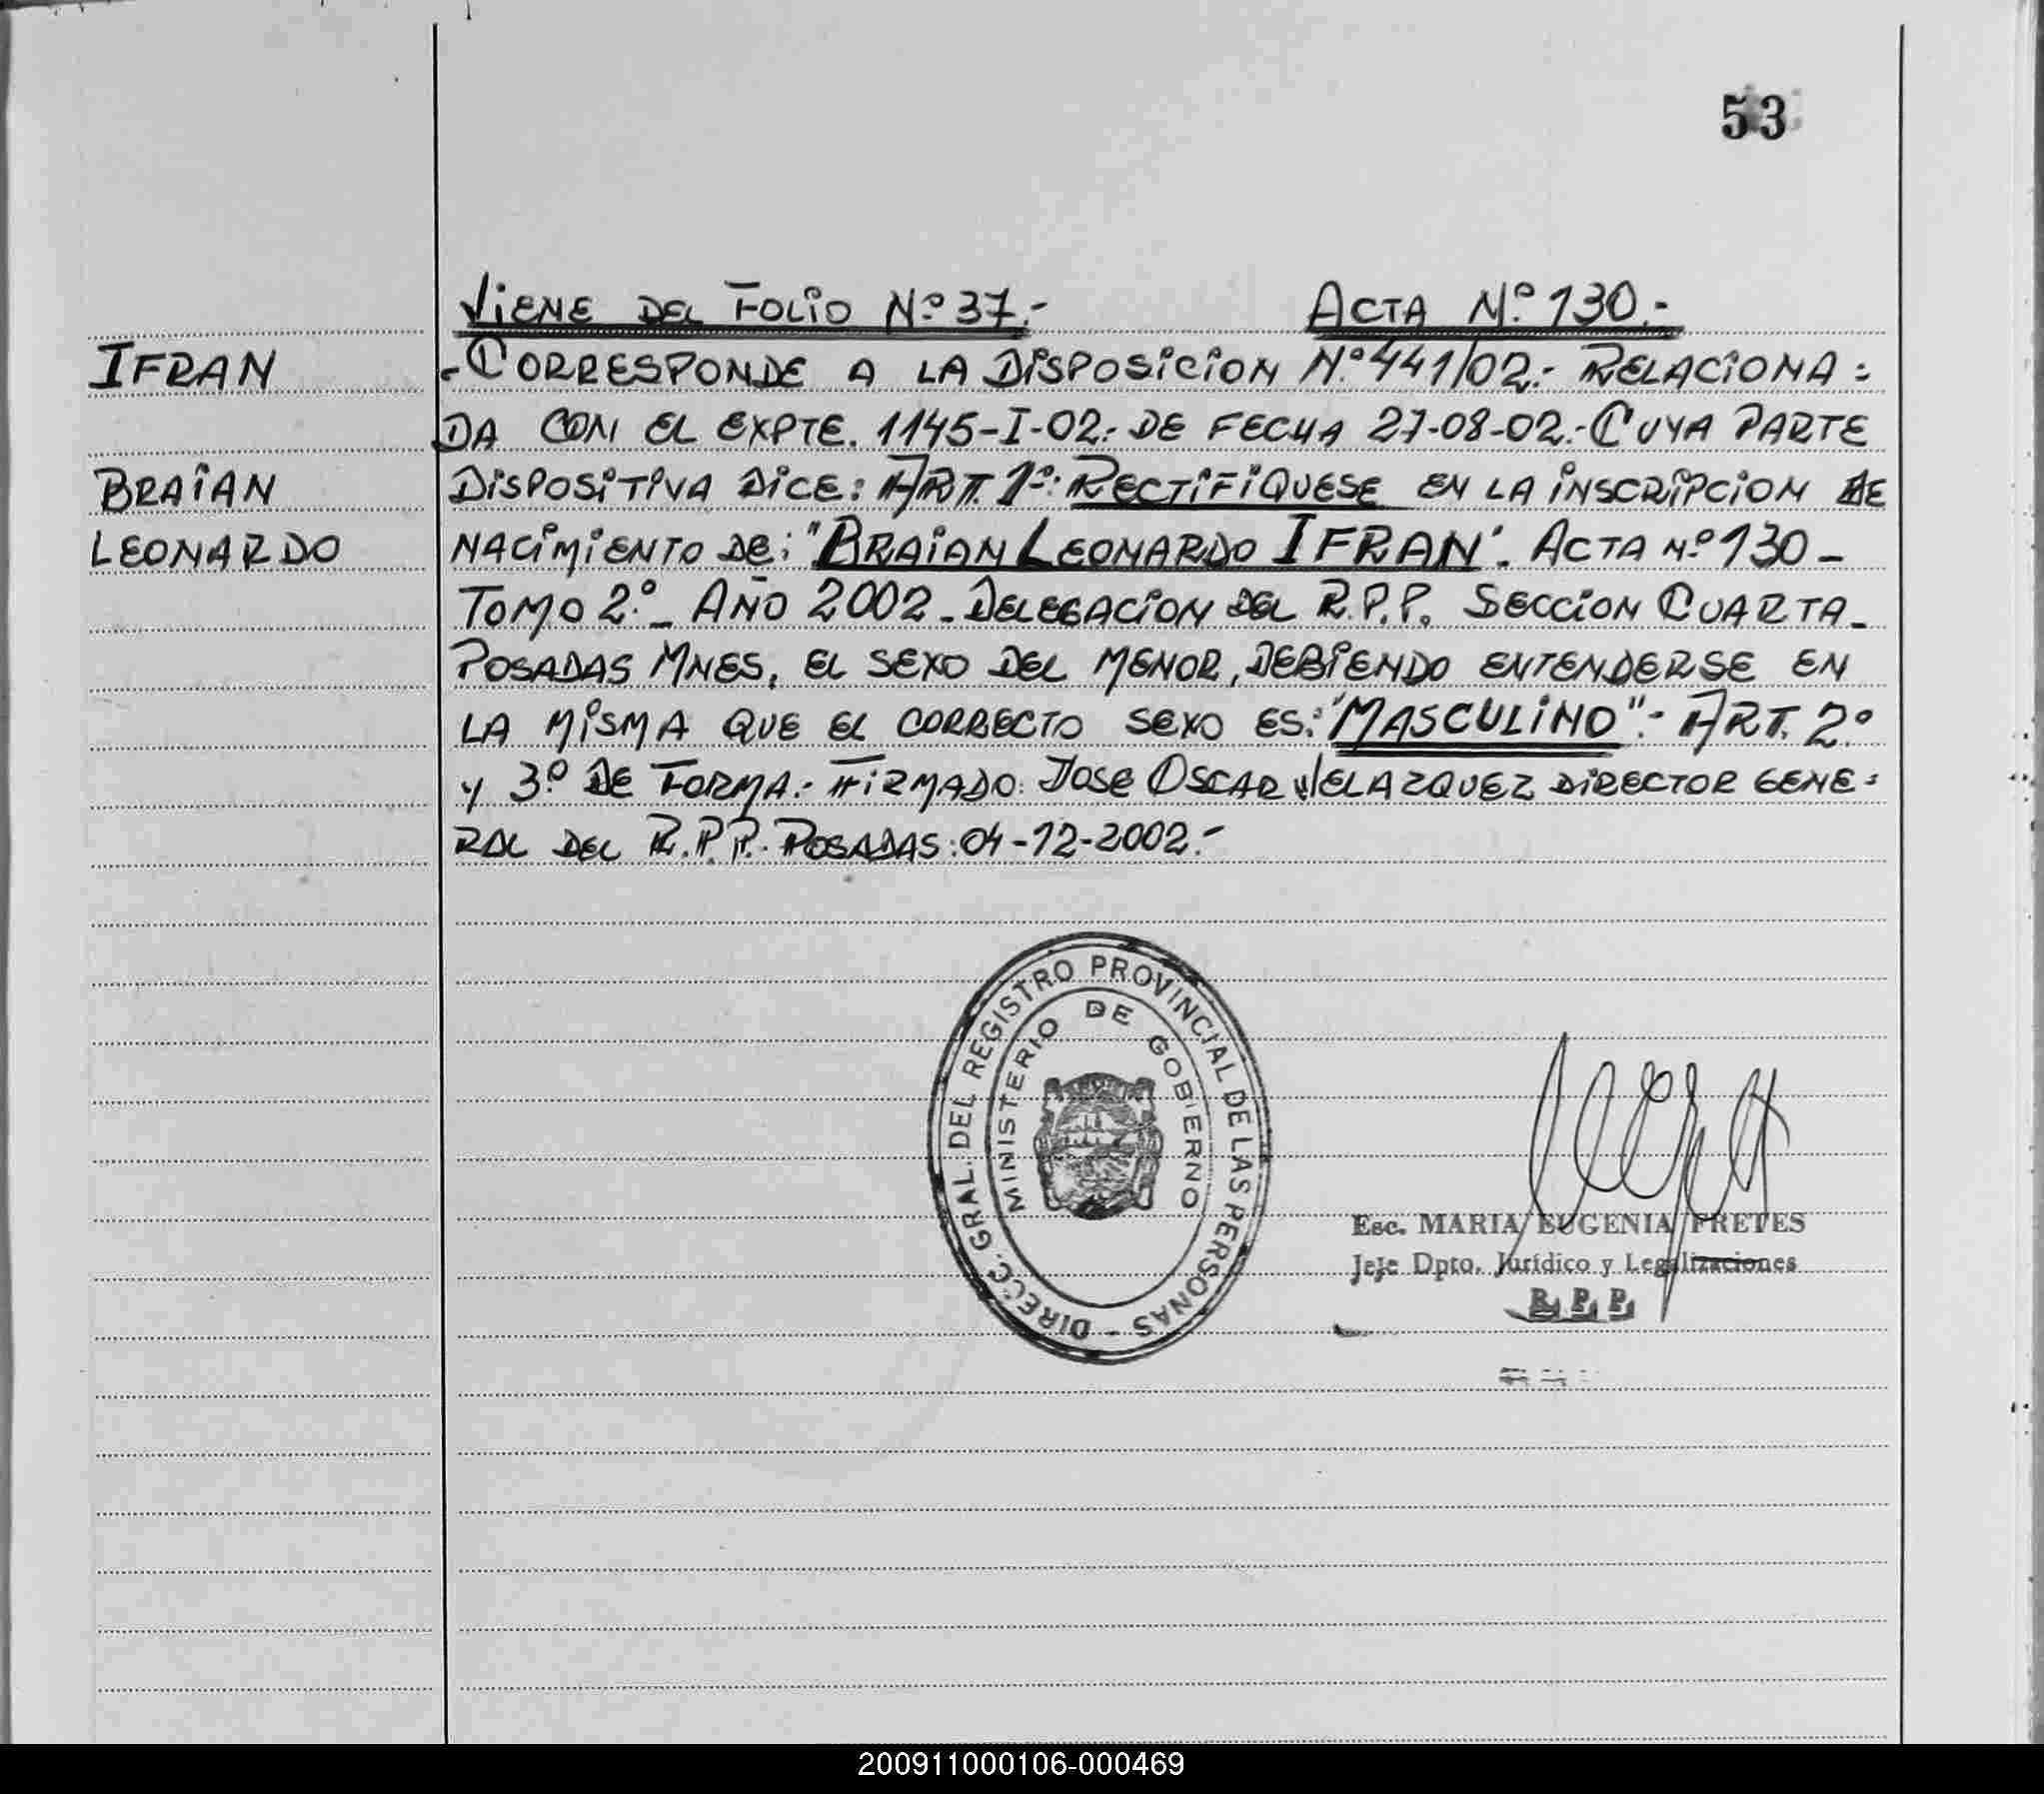 53
VIENE DEL FOLIO Nº 37.- ACTA Nº 130.-
IFRAN
-CORRESPONDE A LA DISPOSICION Nº 441/02.- RELACIONA=
DA CON EL EXPTE. 1145-I-02.- DE FECHA 27-08-02.- CUYA PARTE
BRAIAN
DISPOSITIVA DICE: ART. 1º: RECTIFIQUESE EN LA INSCRIPCION DE
LEONARDO
NACIMIENTO DE: "BRAIAN LEONARDO IFRAN". ACTA Nº 130 -
TOMO 2º - AÑO 2002 - DELEGACION DEL R.P.P. SECCION CUARTA -
POSADAS MNES, EL SEXO DEL MENOR, DEBIENDO ENTENDERSE EN
LA MISMA QUE EL CORRECTO SEXO ES: "MASCULINO".- ART. 2º
Y 3º DE FORMA.- FIRMADO: JOSE OSCAR VELAZQUEZ DIRECTOR GENE=
RAL DEL R.P.P. POSADAS: 04-12-2002.-
DIREC. GRAL. DEL REGISTRO PROVINCIAL DE LAS PERSONAS -
MINISTERIO DE GOBIERNO
Esc. MARIA EUGENIA FRETES
Jefe Dpto. Jurídico y Legalizaciones
R. P. P.
200911000106-000469